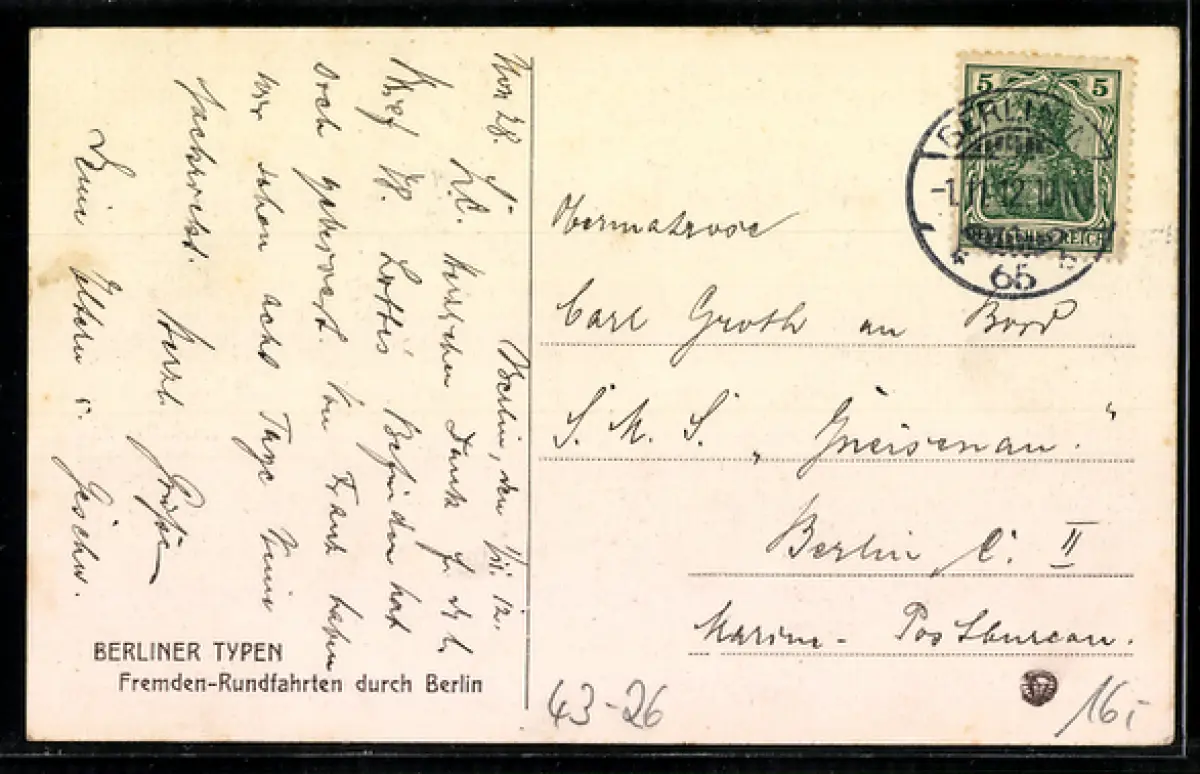 Berlin, den 1/XI. 12.
L. C. Herzlichen Dank f. d. l.
Brief Lotte's Befinden hat
sich gebessert. Von Frank haben
wir schon acht Tage keine
Nachricht. Herzl. Grüße
Deine Eltern u. Geschw.
BERLINER TYPEN
Fremden-Rundfahrten durch Berlin
5 5
DEUTSCHES REICH
BERLIN
-1.11.12.
65
Obermatrose
Carl Groth an Bord
S. M. S. „Gneisenau."
Berlin C. II
Marine- Postbureau.
43-26
16,-